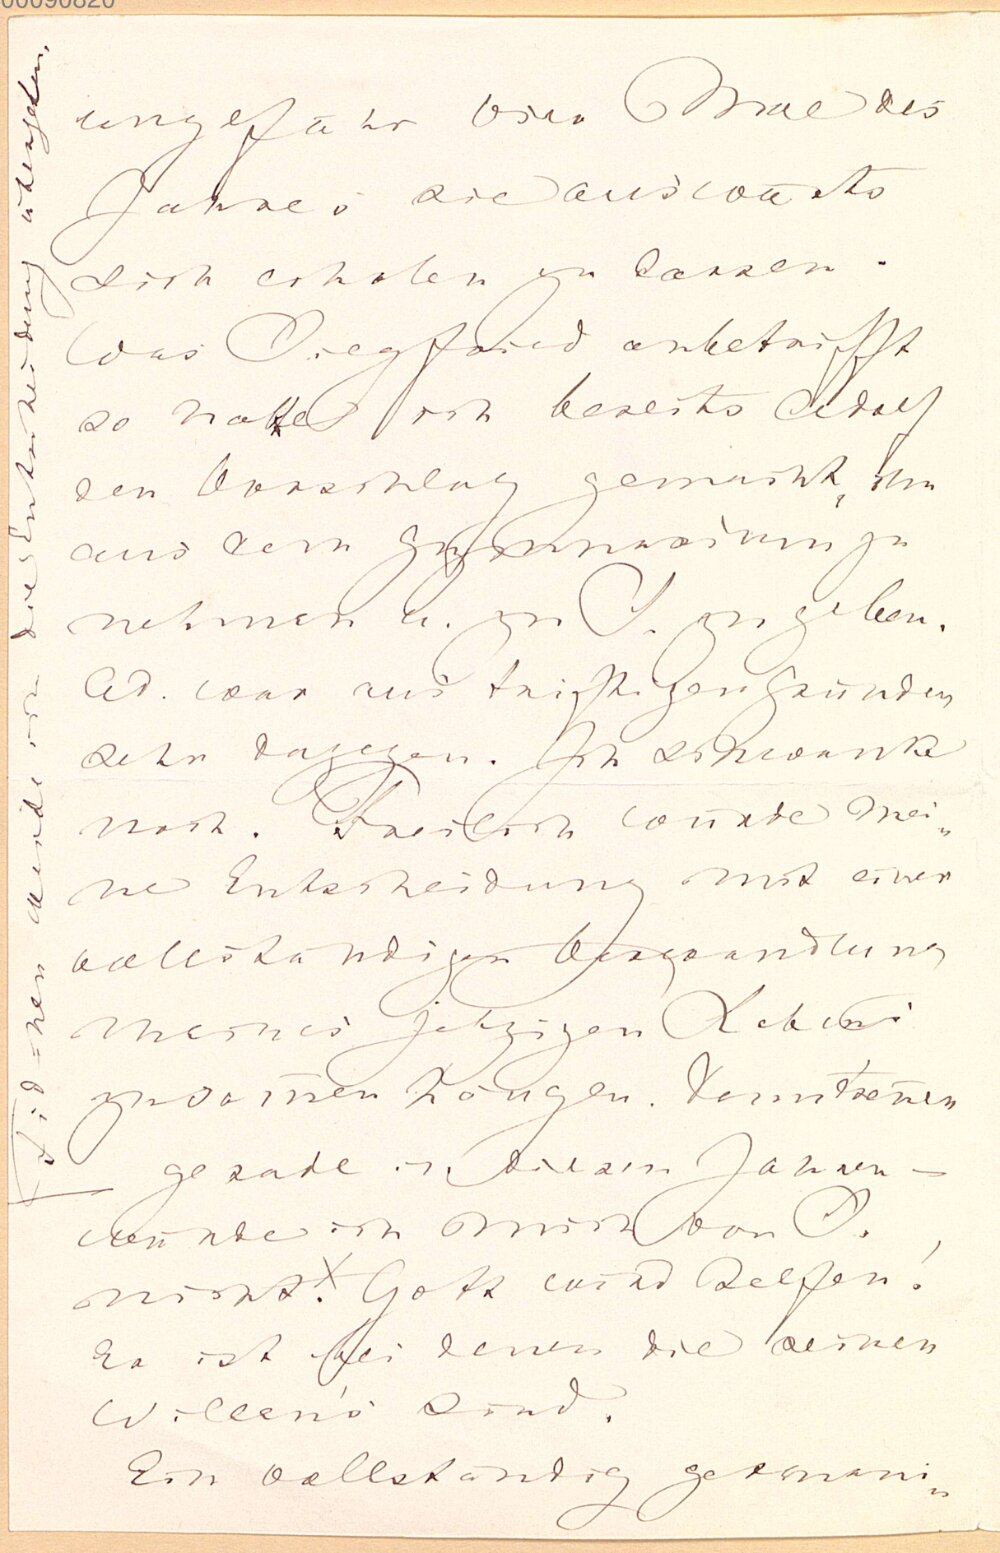 00090820
ungefähr vier Male des
Jahres sie auswärts
sich erholen zu lassen.
Was Siegfried anbetrifft
so hatte ich bereits Adolf
den Vorschlag gemacht, ihn
aus dem Gymnasium zu
nehmen u. zu S. zu geben.
Ad. war aus triftigen Gründen
sehr dagegen. Ich schwanke
noch. Freilich würde mei-
ne Entscheidung mit einer
vollständigen Verwandlung
meines jetzigen Lebens
zusam̄en hängen. Denn trennen
gerade in diesen Jahren –
würde ich mich von S.
nicht! X Gott wird helfen!
Er ist bei denen die seinen
Willen's sind.
Ein vollständig germani-
X Ihnen werde ich die Entscheidung übergeben.